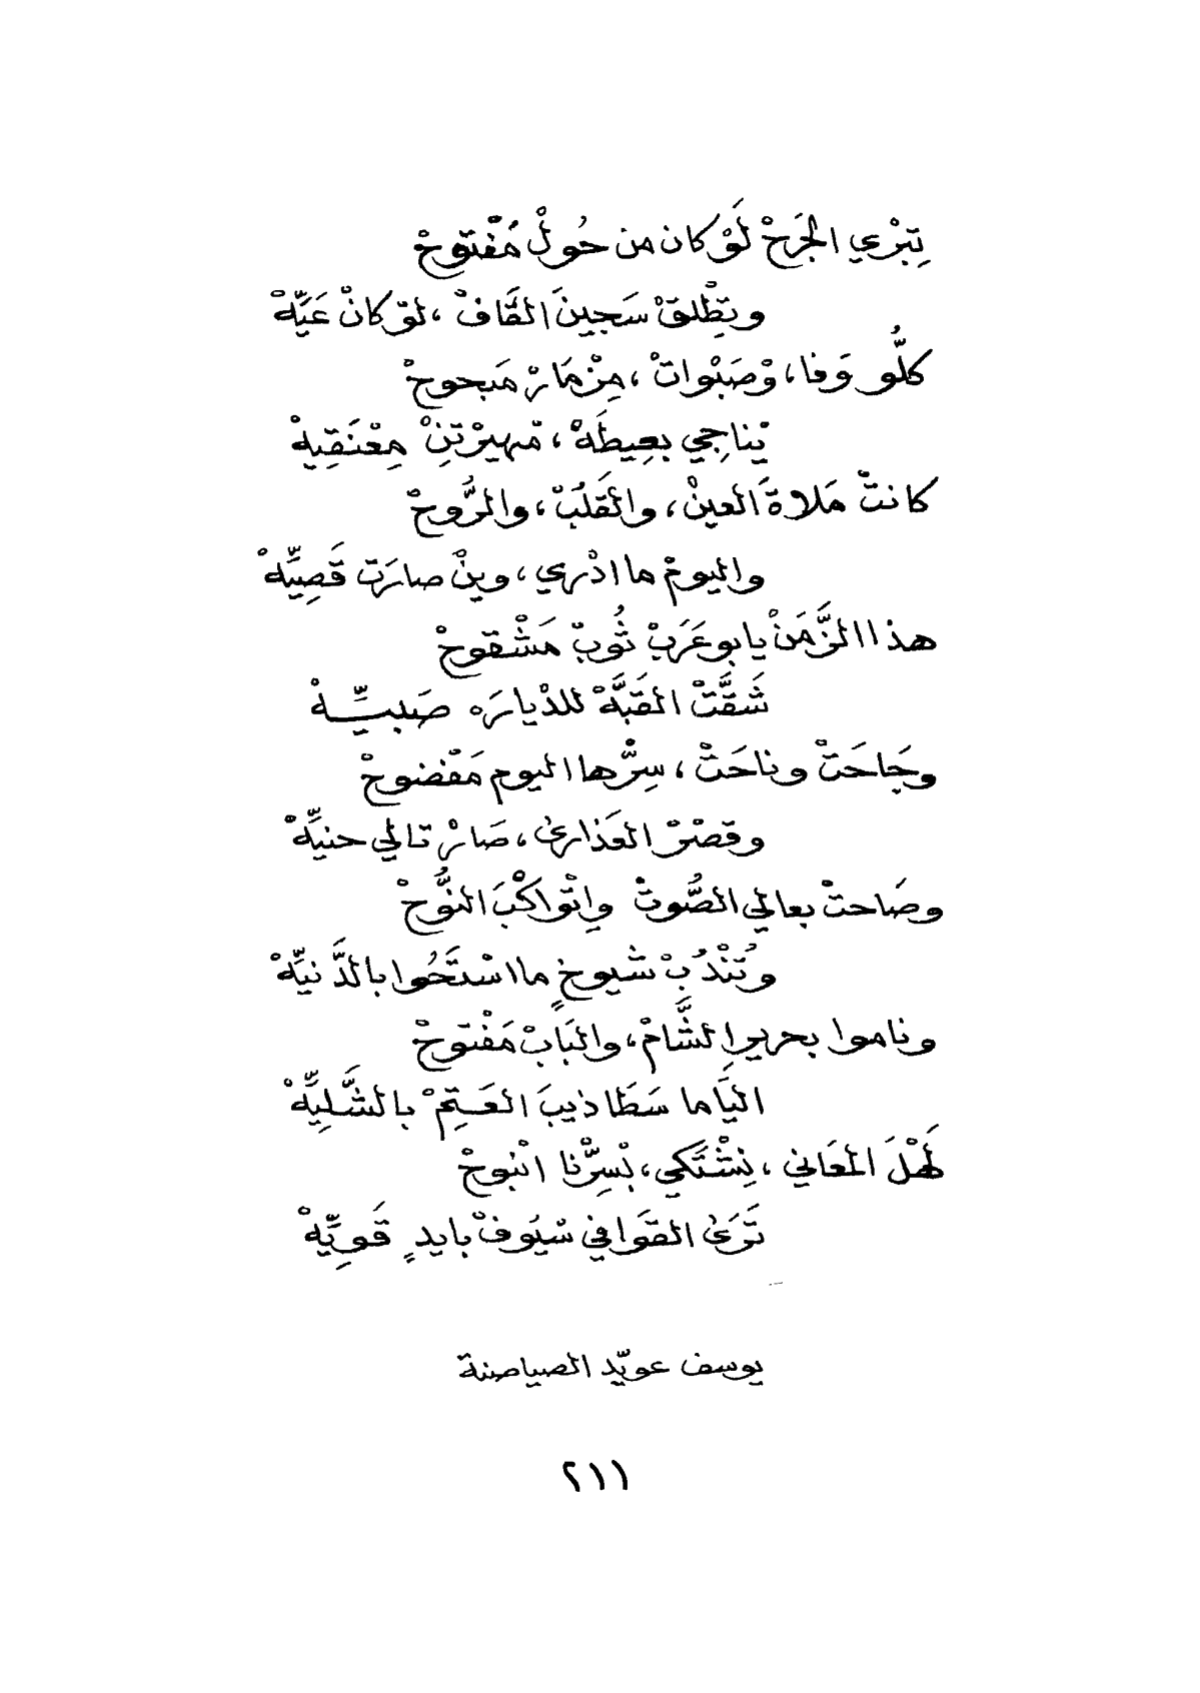 تِبْرْي الجَرَحْ لَوْ كان من حُولْ مَفْتوحْ
وتِطْلقْ سَجينَ القَافْ ، لوْ كانْ عَيِّهْ
كلُّو وَفا، وْصَبْواتْ ، مِزْمَارْ مَبحوحْ
يْناجي بعِيطَهْ ، مْهيرْتِنْ مِعْنَقِيهْ
كانتْ مَلاةَ العينْ ، والقَلُبْ ، والرُّوحْ
واليومْ ما ادْري ، وينْ صارَت قَصِيِّهْ
هذا الزَّمَنْ يابو عَرَبْ ثُوبْ مَشْقوحْ
شَقَّتْ القَبَّهْ للدْيارَه صَبيِّهْ
وجَاحَتْ وناحَتْ ، سِرّْها اليوم مَفْضوحْ
وقصْرْ العَذارىٰ ، صَارْ تالي حنيِّهْ
وصَاحتْ بعالي الصُّوتْ وِاتْواكْبَ النُّوحْ
وتُنْدُبْ شيوخٍ ما اسْتَحُوا بالدَّنيِّهْ
وناموا بحريرِ الشَّامْ ، والبَابْ مَفْتوحْ
اليَاما سَطَا ذيبَ العَتِمْ بالشَّلِيِّهْ
لَهْلَ المعَاني ، نِشْتَكي ، بْسِرّْنا انْبوحْ
تَرَىٰ القوَافي سْيُوفْ بايدٍ قَوِيِّهْ
يوسف عويّد الصياصنة
٢١١